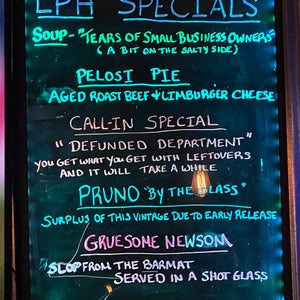 LPH SPECIALS
SOUP - "TEARS OF SMALL BUSINESS OWNERS"
( A BIT ON THE SALTY SIDE)
PELOSI PIE
AGED ROAST BEEF & LIMBURGER CHEESE
CALL-IN SPECIAL
"DEFUNDED DEPARTMENT"
YOU GET WHAT YOU GET WITH LEFTOVERS
AND IT WILL TAKE A WHILE
PRUNO "BY THE GLASS"
SURPLUS OF THIS VINTAGE DUE TO EARLY RELEASE
GRUESOME NEWSOM
SLOP FROM THE BARMAT
SERVED IN A SHOT GLASS